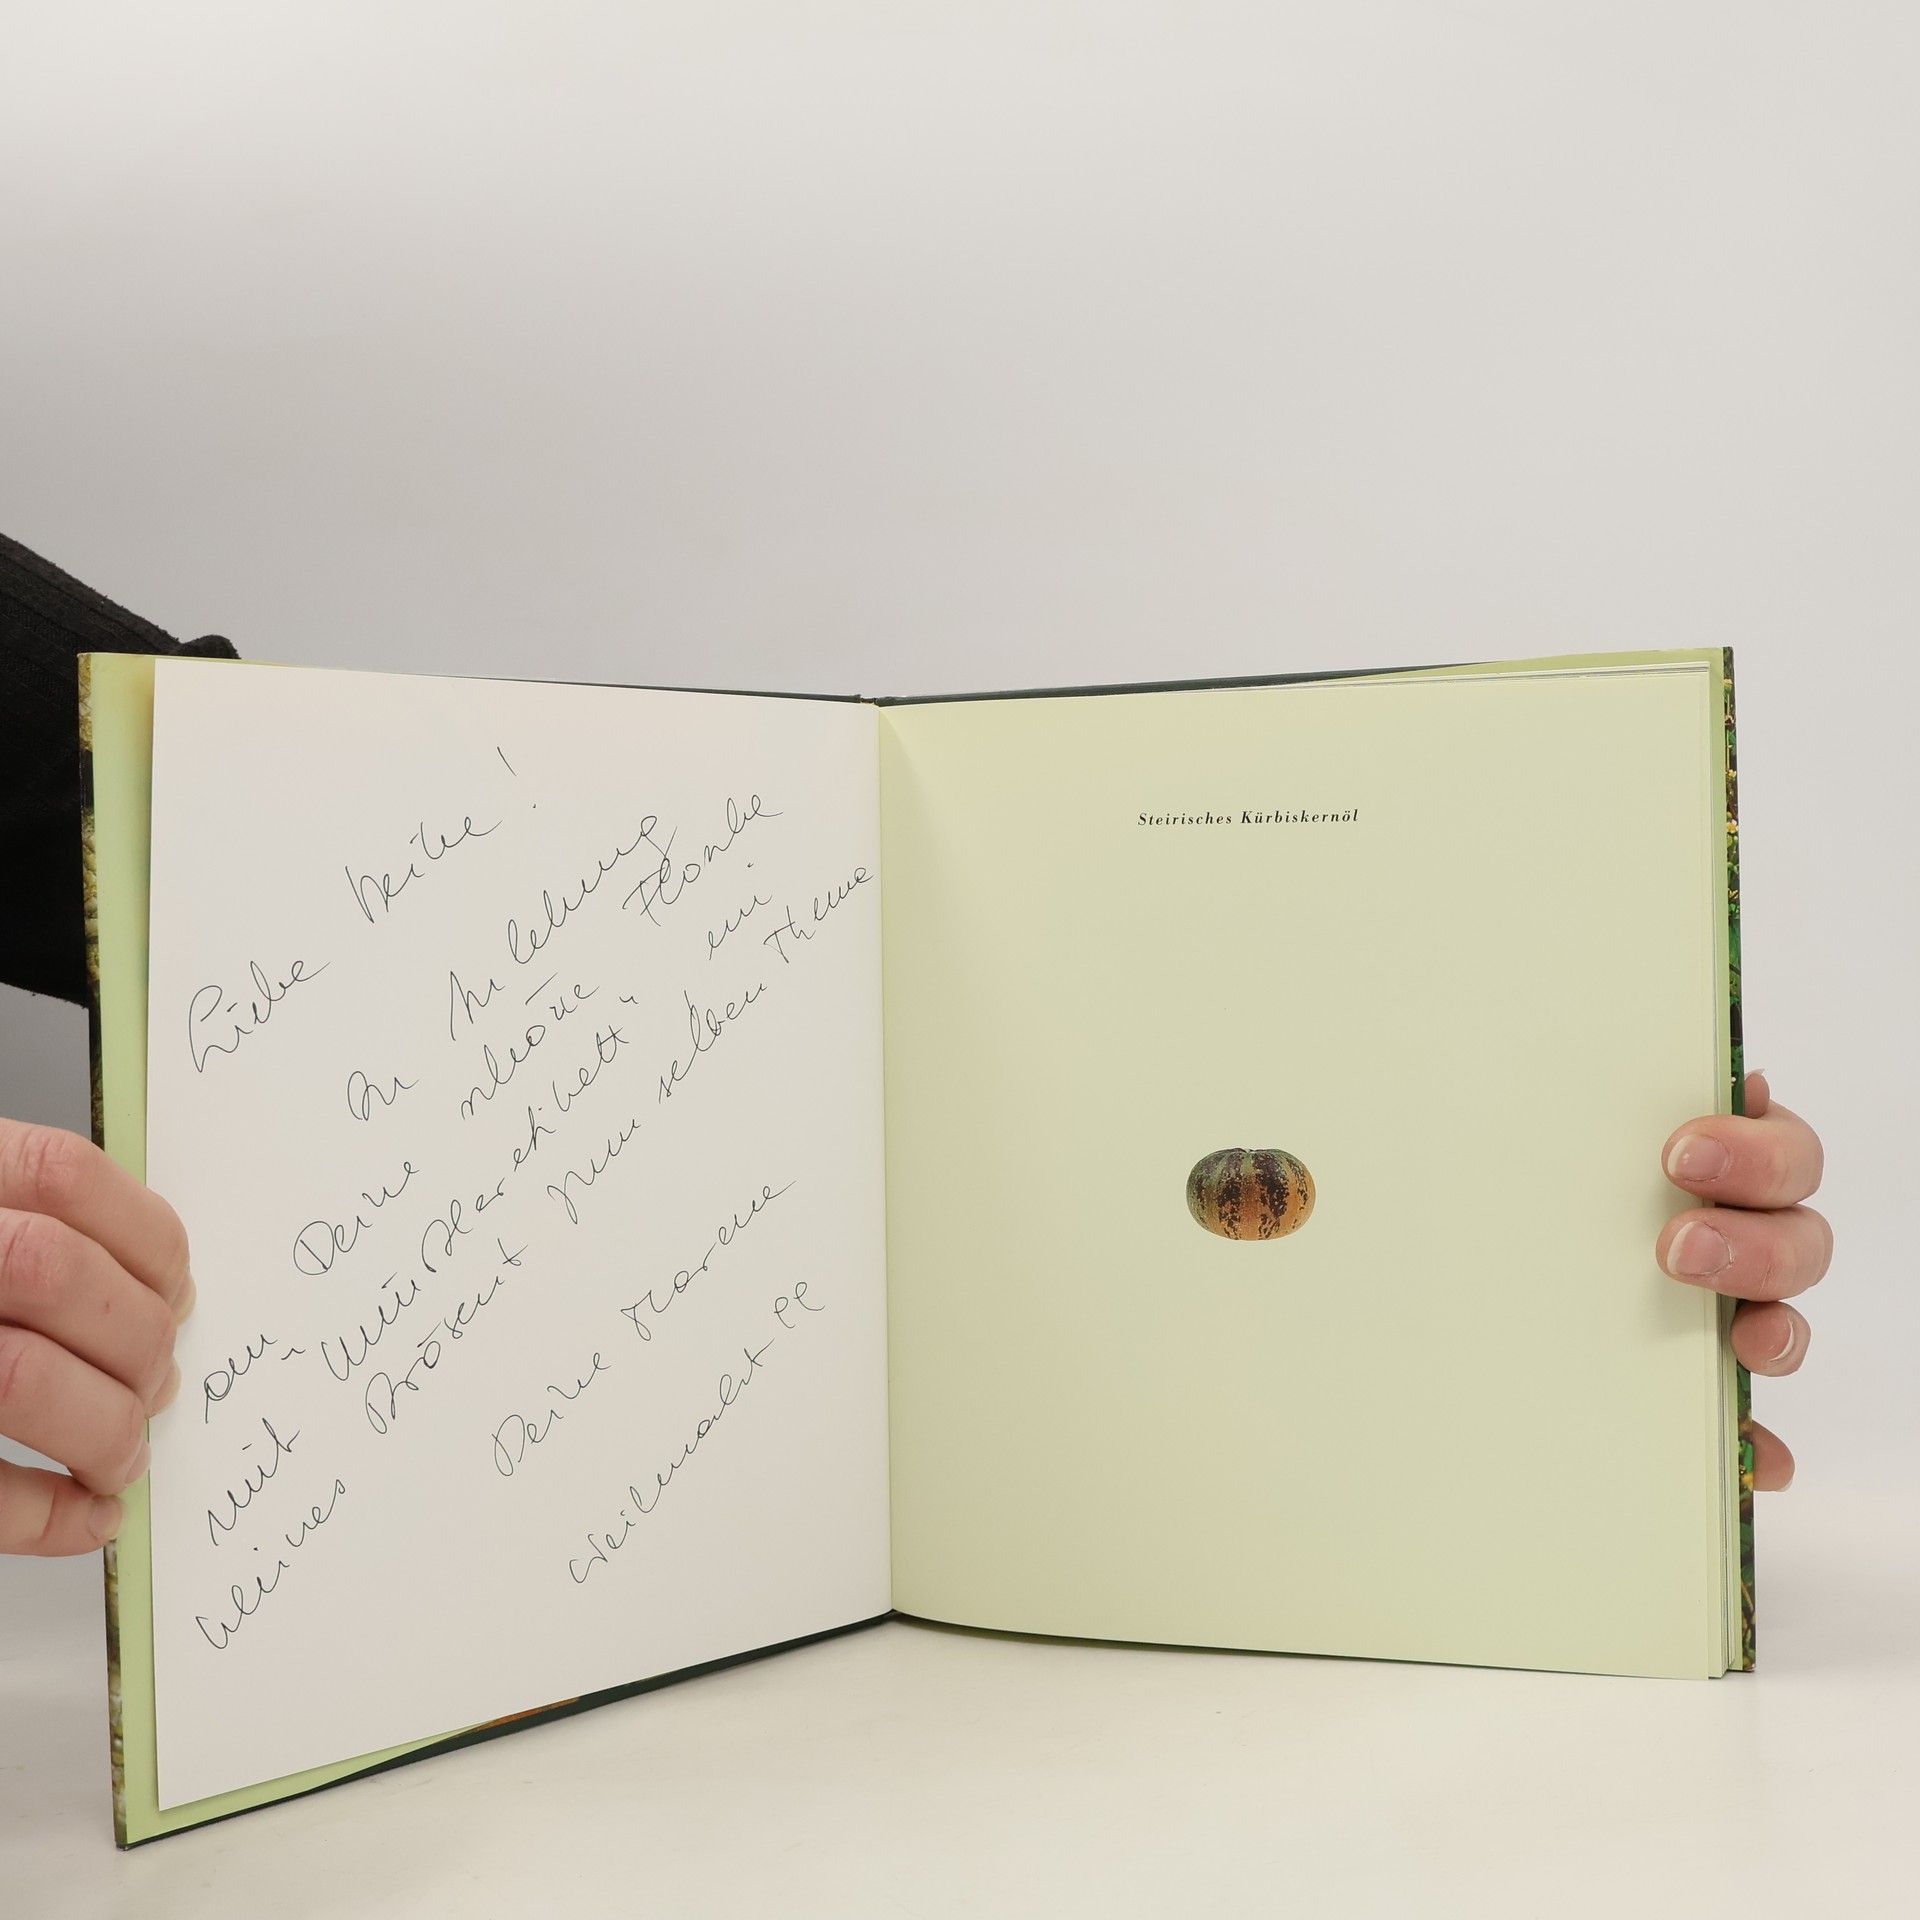 Liebe Heike!
In Anlehnung
an Deine schöne Flasche
mit "Künstleretikett" ein
kleines Präsent zum selben Thema
Deine Marene
Weihnacht 99
Steirisches Kürbiskernöl